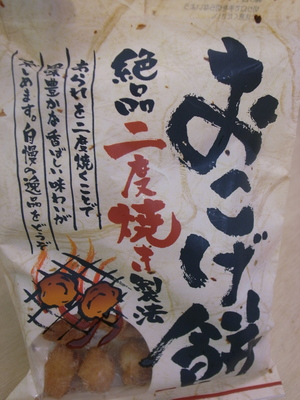 おこげ餅
絶品二度焼き製法
あられを二度焼くことで
深豊かな香ばしい味わいが
楽しめます。自慢の逸品をどうぞ